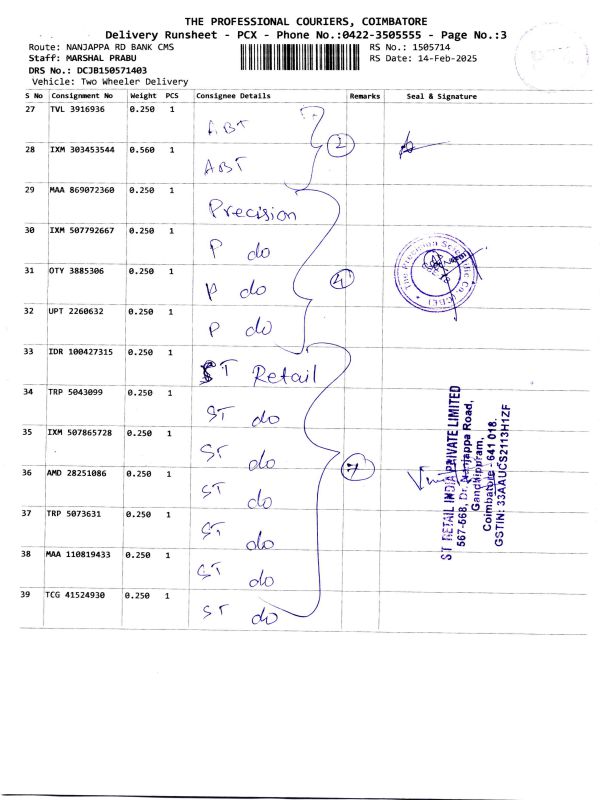 THE PROFESSIONAL COURIERS, COIMBATORE
Delivery Runsheet - PCX - Phone No.:0422-3505555 - Page No.:3
Route: NANJAPPA RD BANK CMS
RS No.: 1505714
Staff: MARSHAL PRABU
RS Date: 14-Feb-2025
DRS No.: DCJB150571403
Vehicle: Two Wheeler Delivery
S No Consignment No Weight PCS Consignee Details Remarks Seal & Signature
27 TVL 3916936 0.250 1 ABT
28 IXM 303453544 0.560 1 ABT
2
29 MAA 869072360 0.250 1 Precision
30 IXM 507792667 0.250 1 P do
31 OTY 3885306 0.250 1 P do
4
The Precision Scientific Co. (CBE)
32 UPT 2260632 0.250 1 P do
33 IDR 100427315 0.250 1 ST Retail
34 TRP 5043099 0.250 1 ST do
35 IXM 507865728 0.250 1 ST do
36 AMD 28251086 0.250 1 ST do
7
37 TRP 5073631 0.250 1 ST do
38 MAA 110819433 0.250 1 ST do
39 TCG 41524930 0.250 1 ST do
ST RETAIL INDIA PRIVATE LIMITED
567-568, Dr. Nanjappa Road,
Gandhippuram,
Coimbatore - 641 018.
GSTIN: 33AAUCS2113H1ZF